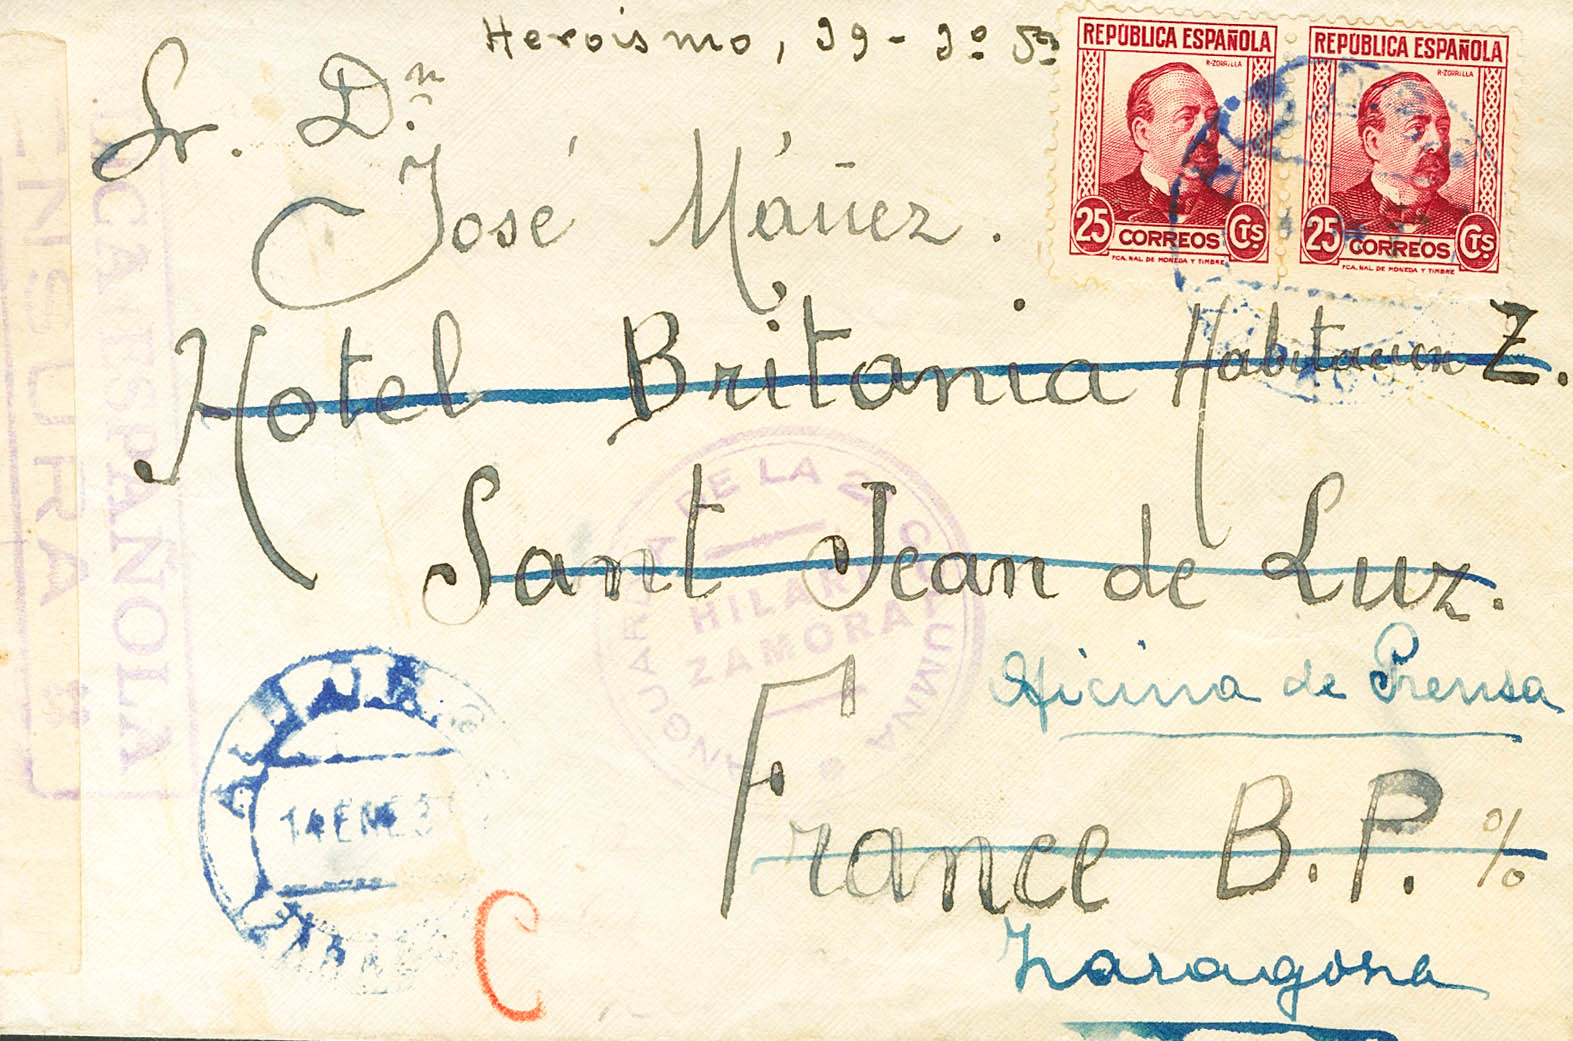 Heroismo, 39 - 3º
REPÚBLICA ESPAÑOLA
R. ZORRILLA
25 CORREOS CTS
FCA. NAL. DE MONEDA Y TIMBRE
REPÚBLICA ESPAÑOLA
R. ZORRILLA
25 CORREOS CTS
FCA. NAL. DE MONEDA Y TIMBRE
Sr. Dn.
José Máñez.
Hotel Britania Habitacion Z.
Sant Jean de Luz.
Oficina de Prensa
France B.P. %
Zaragoza
DE LA 2ª COLUMNA
HILARIO
ZAMORA
14 ENE 37
C
ESPAÑOLA
ENSURA